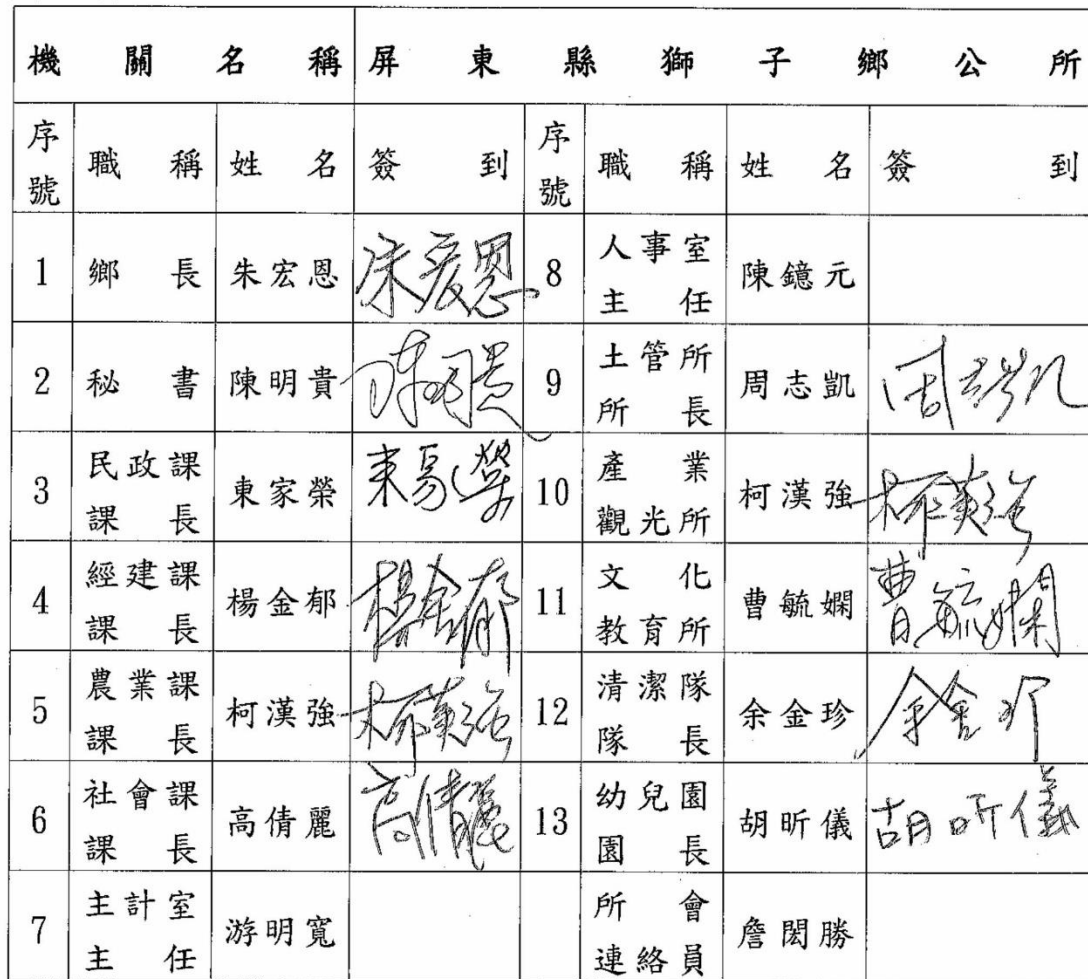 機關名稱 屏東縣獅子鄉公所
序號 職稱 姓名 簽到 序號 職稱 姓名 簽到
1 鄉長 朱宏恩 8 人事室主任 陳鐿元
2 秘書 陳明貴 陳明貴 9 土管所所長 周志凱 周志凱
3 民政課課長 東家榮 10 產業觀光所 柯漢強 柯漢強
4 經建課課長 楊金郁 楊金郁 11 文化教育所 曹毓嫻 曹毓嫻
5 農業課課長 柯漢強 柯漢強 12 清潔隊隊長 余金珍 余金珍
6 社會課課長 高倩麗 高倩麗 13 幼兒園園長 胡昕儀 胡昕儀
7 主計室主任 游明寬 所會連絡員 詹閎勝